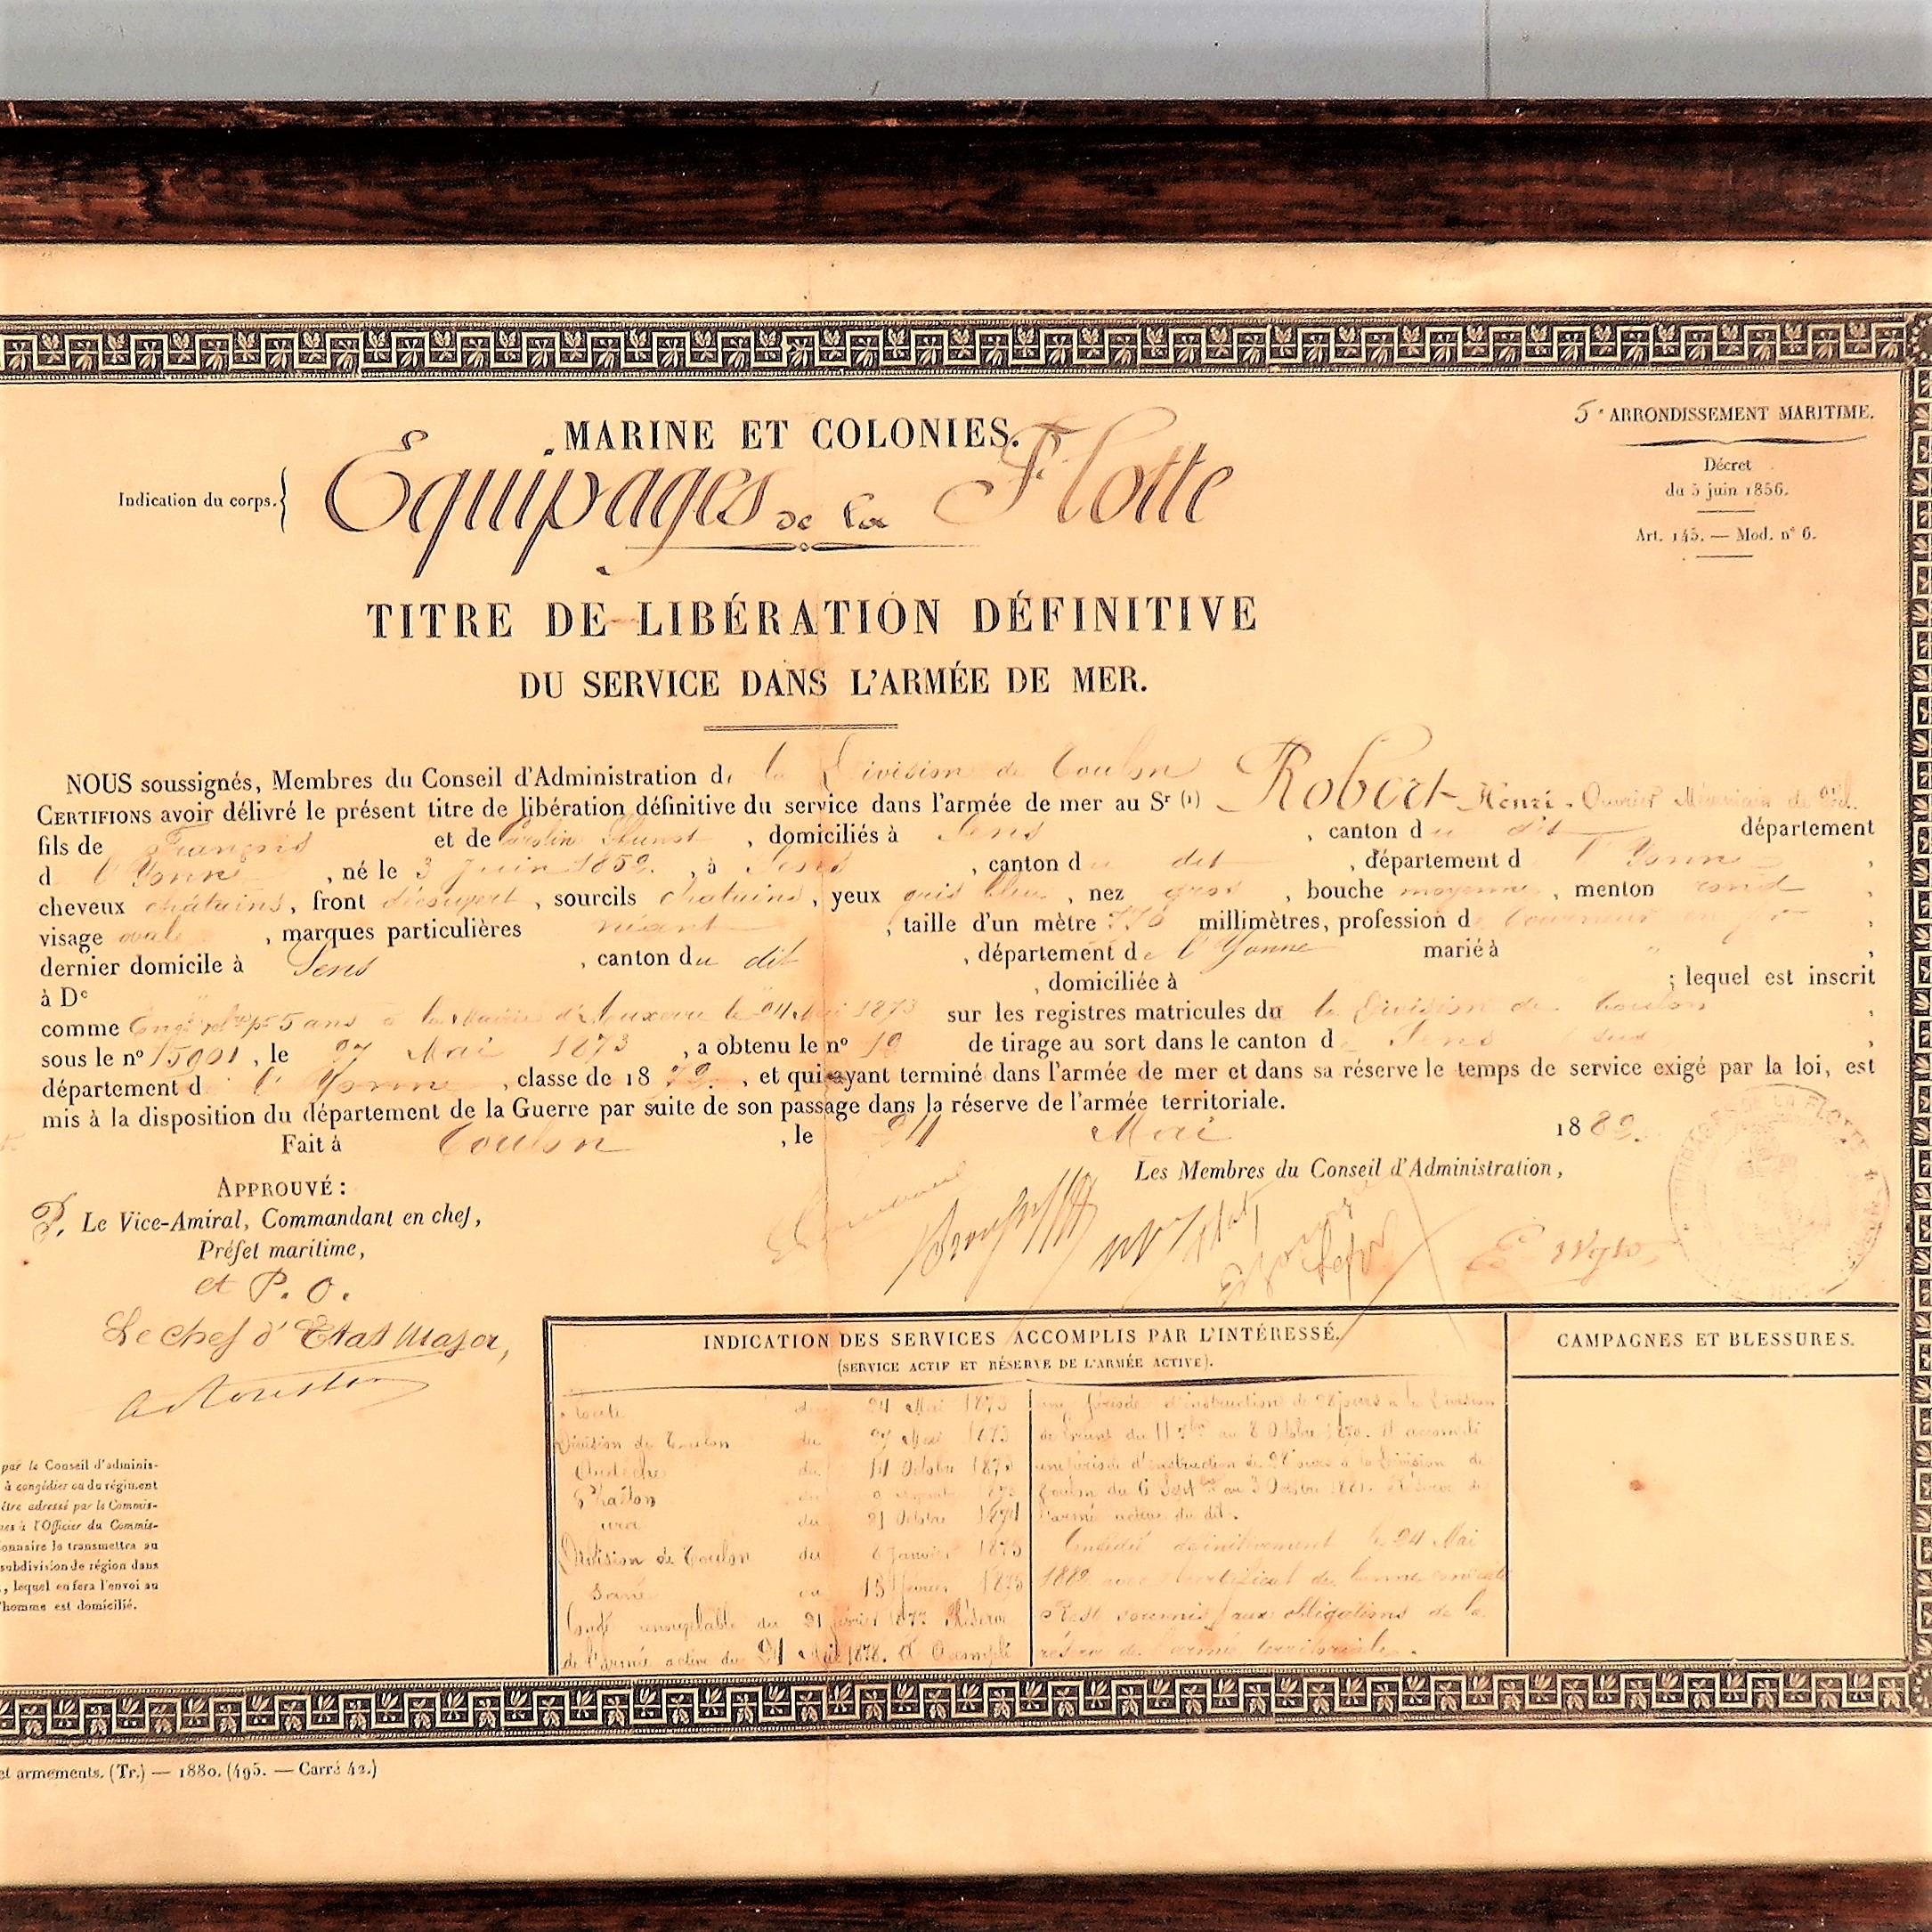 MARINE ET COLONIES.
5e ARRONDISSEMENT MARITIME.
Indication du corps. Equipages de la Flotte
Décret
du 5 juin 1856.
Art. 145. — Mod. n° 6.
TITRE DE LIBÉRATION DÉFINITIVE
DU SERVICE DANS L'ARMÉE DE MER.
NOUS soussignés, Membres du Conseil d'Administration de la Division de Toulon
CERTIFIONS avoir délivré le présent titre de libération définitive du service dans l'armée de mer au Sr (1) Robert Henri. Ouvrier Mécanicien de
fils de François et de Caroline , domiciliés à Sens , canton du dit département
d l'Yonne , né le 3 Juin 1852. , à Sens , canton du dit , département d l'Yonne ,
cheveux châtains, front découvert , sourcils chatains , yeux gris bleu , nez gros , bouche moyenne , menton rond ,
visage ovale , marques particulières néant , taille d'un mètre 776 millimètres, profession d Tourneur en fer ,
dernier domicile à Sens , canton du dit , département de l'Yonne marié à " ,
à De , domiciliée à ; lequel est inscrit
comme 5 ans à la Mairie d'Auxerre le 24 Mai 1873 sur les registres matricules de la Division de Toulon ,
sous le n° 15001 , le 27 Mai 1873 , a obtenu le n° 19 de tirage au sort dans le canton d Sens ,
département d l'Yonne , classe de 1872. , et qui ayant terminé dans l'armée de mer et dans sa réserve le temps de service exigé par la loi, est
mis à la disposition du département de la Guerre par suite de son passage dans la réserve de l'armée territoriale.
Fait à Toulon , le 24 Mai 1882.
APPROUVÉ :
Les Membres du Conseil d'Administration,
P. Le Vice-Amiral, Commandant en chef,
Préfet maritime,
et P. O.
Le chef d'Etat Major,
EQUIPAGES DE LA FLOTTE
INDICATION DES SERVICES ACCOMPLIS PAR L'INTÉRESSÉ.
(SERVICE ACTIF ET RÉSERVE DE L'ARMÉE ACTIVE).
CAMPAGNES ET BLESSURES.
du 24 Mai 1873
Division de Toulon du 27 Mai 1873
Ardèche du 14 Octobre 1873
du
du 21 Octobre 1874
Division de Toulon du 6 Janvier 1875
15 février 1875
Congé renouvelable du 21 février 1877 Réserve
de l'armée active du 24 Mai 1878. A accompli
une période d'instruction de 28 jours à la Division
de Brest du 11 au 8 Octobre . A accompli
une période d'instruction de 28 jours à la Division de
Toulon du 6 Sept au 3 Octobre 1881. Réserve de
l'armée active du dit.
Congédié définitivement le 24 Mai
1882 avec certificat de bonne conduite
Reste soumis aux obligations de la
réserve de l'armée territoriale.
par le Conseil d'adminis-
à congédier ou du régiment
être adressé par le Commis-
à l'Officier du Commis-
onnaire le transmettra au
subdivision de région dans
, lequel en fera l'envoi au
l'homme est domicilié.
et armements. (Tr.) — 1880. (495. — Carré 42.)